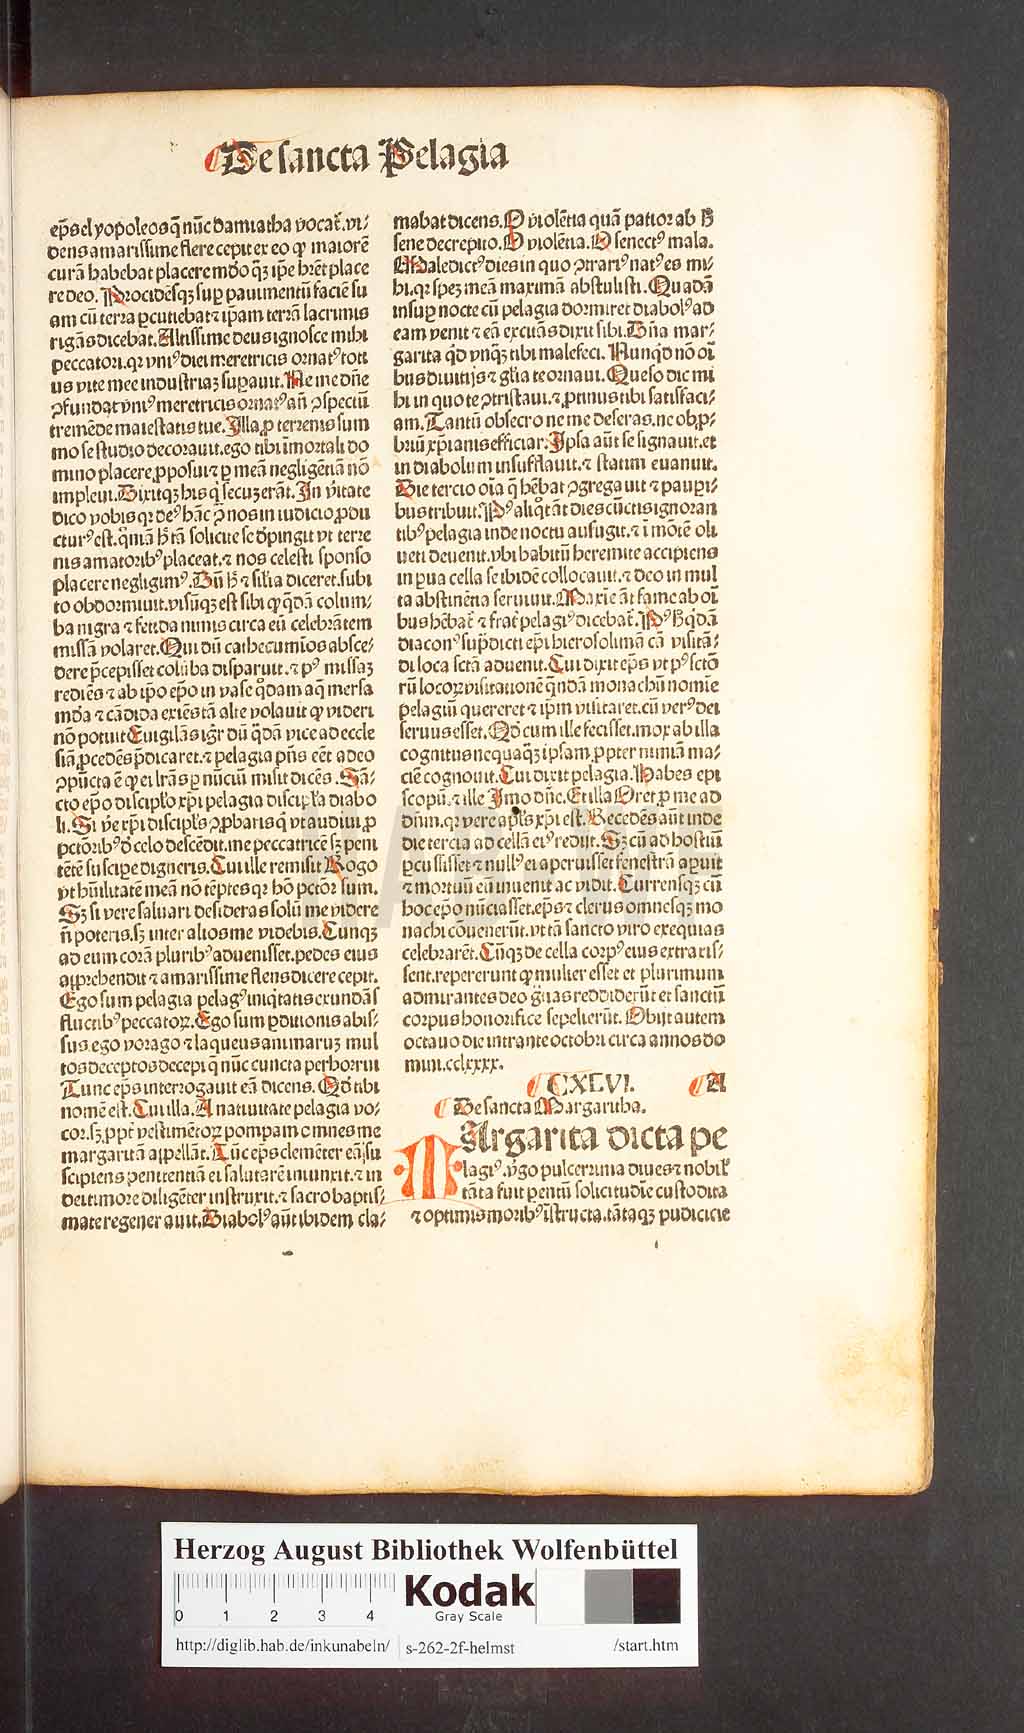 De sancta Pelagia
ep̄s elyopoleos q̄ nūc damiatha vocat᷑. vi⸗
dens amarissime flere cepit ex eo ꝙ maiorē
curā habebat placere mūdo q̄ꝫ ip̄e hr̄et place
re deo. Procidēsqꝫ suꝑ pauimentū faciē su
am cū terra ꝑcutiebat ⁊ ip̄am terrā lacrimis
rigās dicebat. Altissime deus ignosce mihi
peccatori. qꝛ vniꝰ diei meretricis ornatꝰ toti
us vite mee industriaꝫ suꝑauit. Ne me dn̄e
ꝯfundat vniꝰ meretricis ornatꝰ añ ꝯspectū
tremēde maiestatis tue. Illa ꝓ terrenis sum
mo se studio decorauit. ego tibi īmortali do
mino placere ꝓposui ⁊ ꝑ meā negligētiā nō
impleui. Dixitqꝫ his q̇ secū erāt. In v̓itate
dico vobis qꝛ deꝰ hāc ꝯ̄ nos in iudicio ꝓdu
cturꝰ est. qm̄ hec tā solicite se depingit vt terre
nis amatoribꝰ placeat. ⁊ nos celesti sponso
placere negligimꝰ. Dū hͦ ⁊ silia diceret. subi
to obdormiuit. visūqꝫ est sibi ꝙ q̄dā colum⸗
ba nigra ⁊ fetida nimis circa eū celebrātem
missā volaret. Qui dū cathecumīos absce⸗
dere p̄cepisset colūba disparuit. ⁊ pꝰ missaꝫ
rediēs ⁊ ab ip̄o ep̄o in vase qͦdam aq̄ mersa
mūda ⁊ cādida exiēs tā alte volauit ꝙ videri
nō potuit Euigilās igr̄ dū q̇dā vice ad eccle
siā ꝓcedēs p̄dicaret. ⁊ pelagia pn̄s eēt adeo
ꝯpūcta ē ꝙ ei lr̄as ꝑ nūciū misit dicēs. Sā⸗
cto ep̄o discipl̓o xp̄i pelagia discipl̓a diabo
li. Si v̓e xp̄i discipl̓s ꝯꝓbaris q̇ vt audiui ꝓ
pctōribꝰ de celo descēdit. me peccatricē sꝫ peni
tētē suscipe digneris. Cui ille remisit Rogo
vt hūilitatē meā nō tēptes qꝛ hō pctōr sum.
Sꝫ si vere saluari desideras solū me videre
n̄ poteris. sꝫ inter alios me videbis. Cunqꝫ
ad eum corā pluribꝰ aduenisset. pedes eius
apprehendit ⁊ amarissime flens dicere cepit.
Ego sum pelagia pelagꝰ iniq̇tatis exundās
fluctibꝰ peccatoꝝ. Ego sum ꝑditionis abis⸗
sus. ego vorago ⁊ laqueus animaruꝫ mul
tos deceptos decepi q̄ nūc cuncta perhorrui
Tunc ep̄s interrogauit eā dicens. Qd̓ tibi
nomē est. Cui illa. A natiuitate pelagia vo⸗
cor. sꝫ ꝓpt̓ vestimētoꝝ pompam omnes me
margaritā appellāt. Tūc ep̄s clemēter eā su
scipiens penitentiā ei salutarē iniunxit. ⁊ in
dei timore diligēter instruxit. ⁊ sacro baptis⸗
mate regenerauit. Diabolꝰ aūt ibidem cla⸗
mabat dicens. O violētia quā patior ab hͦ
sene decrepito. O violētia. O senectꝰ mala.
Maledictꝰ dies in quo ꝯtrariꝰ natꝰ es mi⸗
hi. qꝛ speꝫ meā maximā abstulisti. Quadā
insuꝑ nocte cū pelagia dormiret diabolꝰ ad
eam venit ⁊ eā excitās dixit sibi. Dn̄a mar⸗
garita qd̓ vnqꝫ tibi malefeci. Nunqd̓ nō oī
bus diuitijs ⁊ gl̓ia te ornaui. Queso dic mi
hi in quo te ꝯtristaui. ⁊ ꝓtinus tibi satisfaci⸗
am. Tantū obsecro ne me deseras. ne obꝓ⸗
briū xp̄ianis efficiar. Ipsa aūt se signauit. et
in diabolum insufflauit. ⁊ statim euanuit.
Die tercio oīa q̄ hēbat ꝯgregauit ⁊ pauꝑi⸗
bus tribuit. Pꝰ aliqͦtāt dies cūctis ignoran
tibꝰ pelagia inde noctu aufugit. ⁊ ī mōtē oli
ueti deuenit. vbi habitū heremite accipiens
in pua cella se ibidē collocauit. ⁊ deo in mul
ta abstinētia seruiuit. Maxīe āt fame ab oī
bus hēbat᷑ ⁊ frat̓ pelagiꝰ dicebat᷑. Pꝰ hͦ q̇dā
diaconꝰ sup̄dicti ep̄i hierosolimā cā visitā⸗
di loca sctā aduenit. Cui dixit ep̄s vt pꝰ sctō
rū locoꝝ visitationē quēdā monachū nomīe
pelagiū quereret ⁊ ip̄m visitaret. cū verꝰ dei
seruus esset. Qd̓ cum ille fecisset. mox ab illa
cognitus nequaqꝫ ipsam ꝓpter nimiā ma⸗
ciē cognouit. Cui dixit pelagia. Habes epi
scopū. ⁊ ille Imo dn̄e. Et illa Oret ꝓ me ad
dn̄m. qꝛ vere apl̓s xp̄i est. Recedēs aūt inde
die tercia ad cellā eiꝰ redijt. Sꝫ cū ad hostiū
ꝑcussisset ⁊ nullꝰ ei aperuisset fenestrā aꝑuit
⁊ mortuū eū inuenit ac vidit. Currensqꝫ cū
hoc ep̄o nūciasset. ep̄s ⁊ clerus omnesqꝫ mo
nachi cōuenerūt. vt tā sancto viro exequias
celebrarēt. Cūqꝫ de cella corpꝰ eius extraxis⸗
sent. repererunt ꝙ mulier esset et plurimum
admirantes deo gr̄as reddiderūt et sanctū
corpus honorifice sepelierūt. Obijt autem
octauo die intrante octobri circa annos do
mini. cclxxxx.
CXLVI. A
De sancta Margaritha.
MArgarita dicta pe
lagiꝰ. v̓go pulcerrima diues ⁊ nobil̓
tāta fuit pentū solicitudīe custodita
⁊ optimis moribꝰ īstructa. tātaqꝫ pudicicie
Herzog August Bibliothek Wolfenbüttel
0 1 2 3 4
Kodak
Gray Scale
http://diglib.hab.de/inkunabeln/ s-262-2f-helmst /start.htm